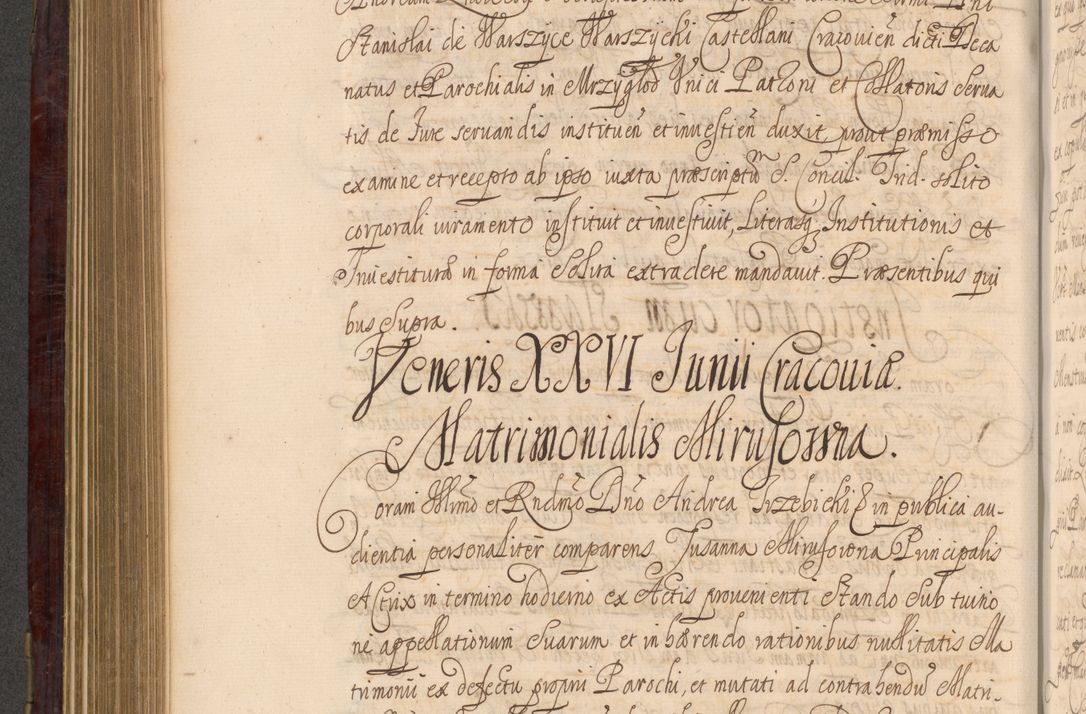 Stanislai de Warszyce Warszycki Castellani Cracovien dicti Deca
natus et Parochialis in Mrzygłod Unici Patroni et Collatoris Serva
tis de Jure servandis instituen et investien duxit, prout præmisso
examine et recepto ab ipso iuxta præscriptũ S. Concil. Trid. solito
corporali iuramento instituit et investivit, Literasq Institutionis et
Investituræ in forma Solita extradere mandavit. Præsentibus qui
bus Supra.
Veneris XXVI Junii Cracoviæ.
Matrimonialis Mirusowna.
Coram Illmo et Rndmo Dno Andrea Trzebicki in publica au-
dientia personaliter comparens Susanna Mirusowna Principalis
Actrix in termino hodierno ex Actis provenienti Stando Sub tuitio
ne appellationum Suarum et inhærendo rationibus nullitatis Ma
trimonii ex defectu proprii Parochi, et mutati ad contrahendũ Matri-